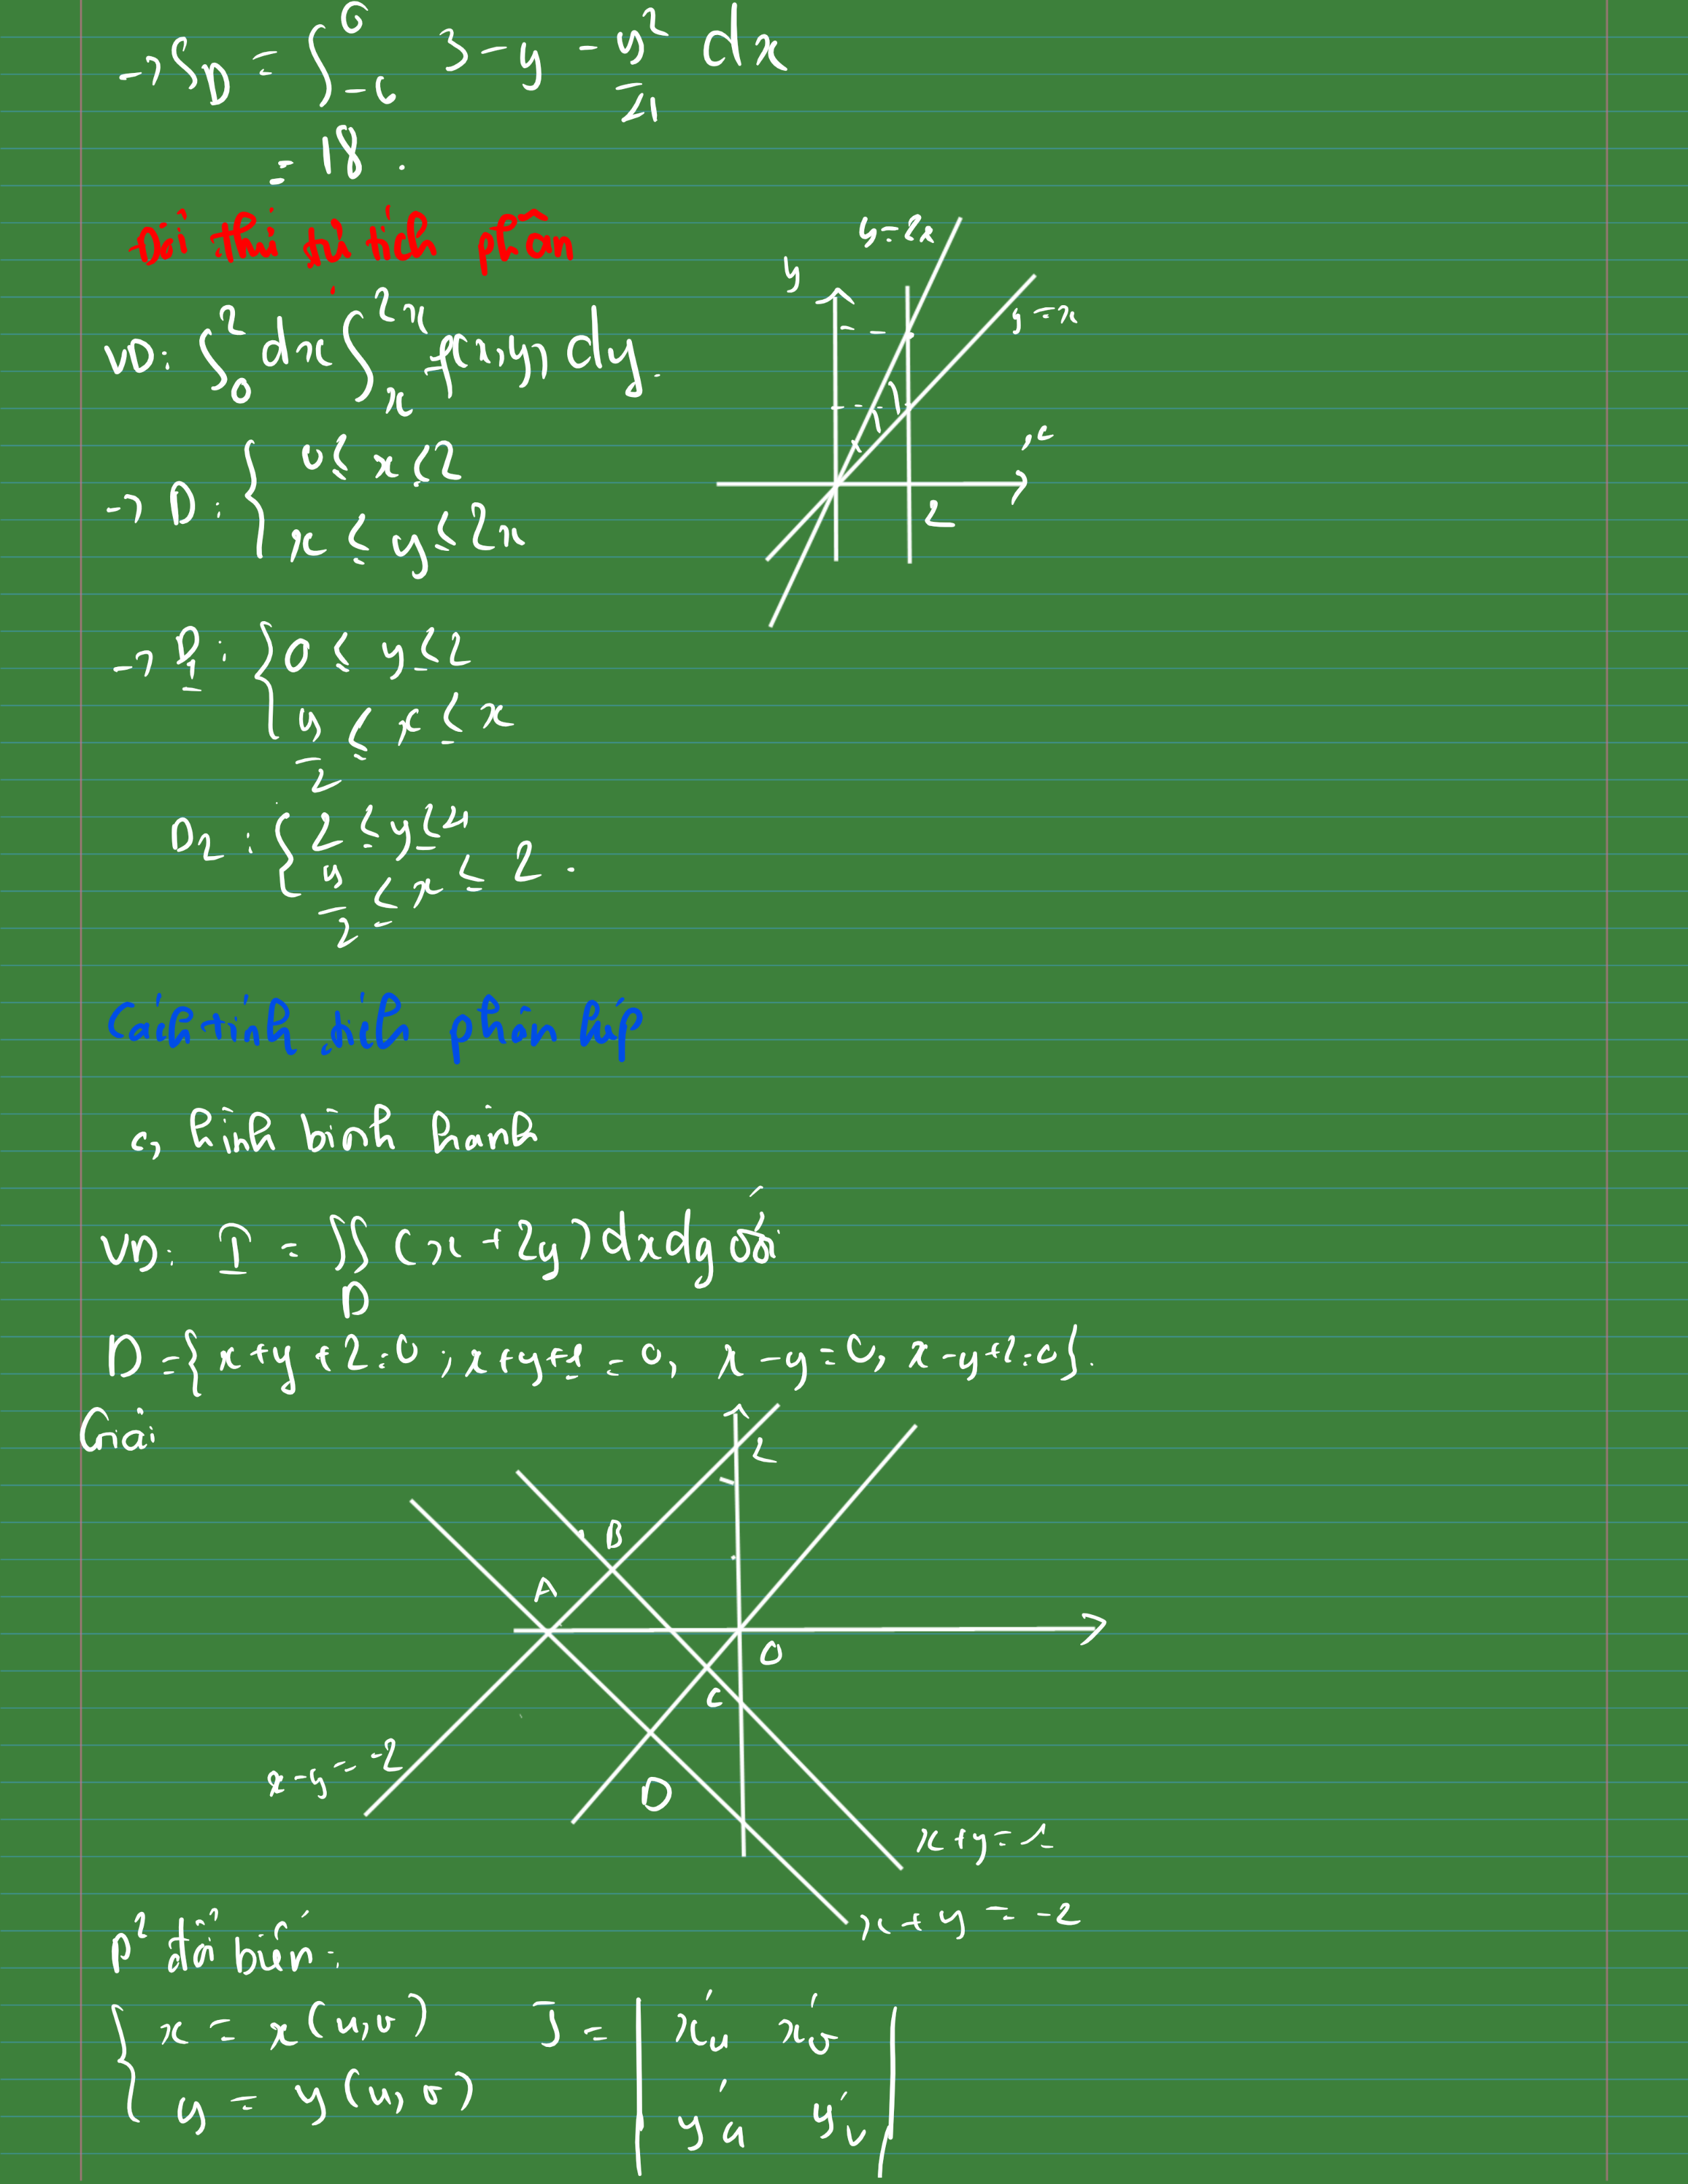 → S_D = ∫_{-6}^{6} 3 - y - y²/4 dx
= 18 .
Đổi thứ tự tích phân
VD: ∫_0^2 dx ∫_x^{2x} f(x,y) dy.
y = 2x
y
y = x
x
2
→ D: { 0 ≤ x ≤ 2
x ≤ y ≤ 2x
→ D_1: { 0 ≤ y ≤ 2
y/2 ≤ x ≤ x
D_2: { 2 ≤ y ≤ 4
y/2 ≤ x ≤ 2 .
Cách tính tích phân kép
c, Hình bình hành
VD: I = ∬_D (x + 2y) dxdy với
D = { x+y+2=0 ; x+y+1=0, x-y=0, x-y+2=0 }.
Giải
2
B
A
O
C
x-y = -2
D
x+y = -1
x+y = -2
P² đổi biến:
{ x = x(u,v) J = | x'_u x'_v |
y = y(u,v) | y'_u y'_v |